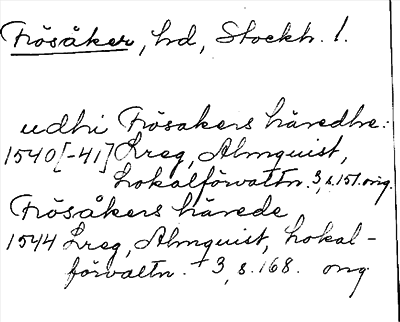 Frösåker, hd, Stockh. l.
udhi Frösakers häredhe:
1540[-41] Lreg, Almquist,
Lokalförvaltn. 3, s. 151. orig.
Frösåkers härede
1544 Lreg, Almquist, Lokal-
förvaltn. 3, s. 168. orig